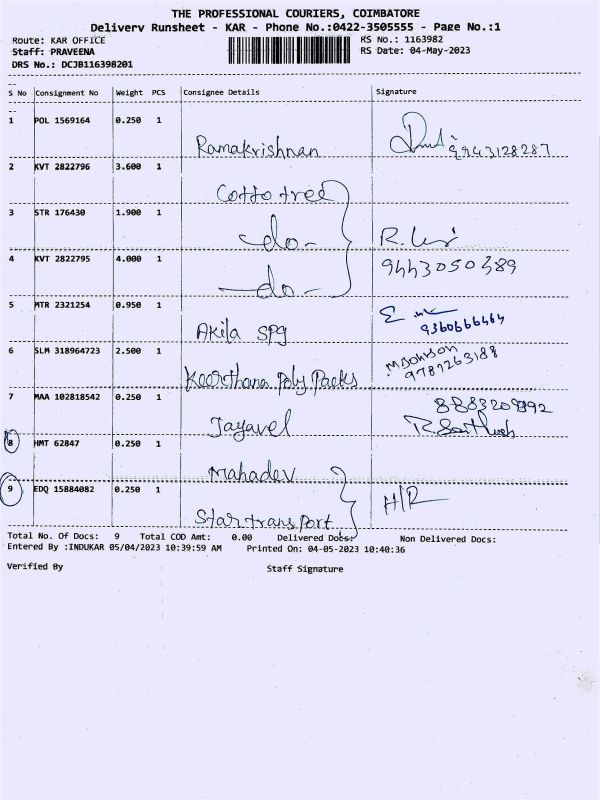 THE PROFESSIONAL COURIERS, COIMBATORE
Delivery Runsheet - KAR - Phone No.:0422-3505555 - Page No.:1
Route: KAR OFFICE RS No.: 1163982
Staff: PRAVEENA RS Date: 04-May-2023
DRS No.: DCJB116398201
S No Consignment No Weight PCS Consignee Details Signature
1 POL 1569164 0.250 1
Ramakrishnan 9943128287
2 KVT 2822796 3.600 1
Cotto tree
3 STR 176430 1.900 1
-do- R.
4 KVT 2822795 4.000 1 9443050489
-do-
5 MTR 2321254 0.950 1
Akila SPG 9360666464
6 SLM 318964723 2.500 1 M.Johnson
Keerthana Poly Packs 9787263188
7 MAA 102818542 0.250 1 8883209892
Jayavel R.Santhosh
8 HMT 62847 0.250 1
Mahadev
9 EDQ 15884082 0.250 1 H/R
Star transport
Total No. Of Docs: 9 Total COD Amt: 0.00 Delivered Docs: Non Delivered Docs:
Entered By :INDUKAR 05/04/2023 10:39:59 AM Printed On: 04-05-2023 10:40:36
Verified By Staff Signature